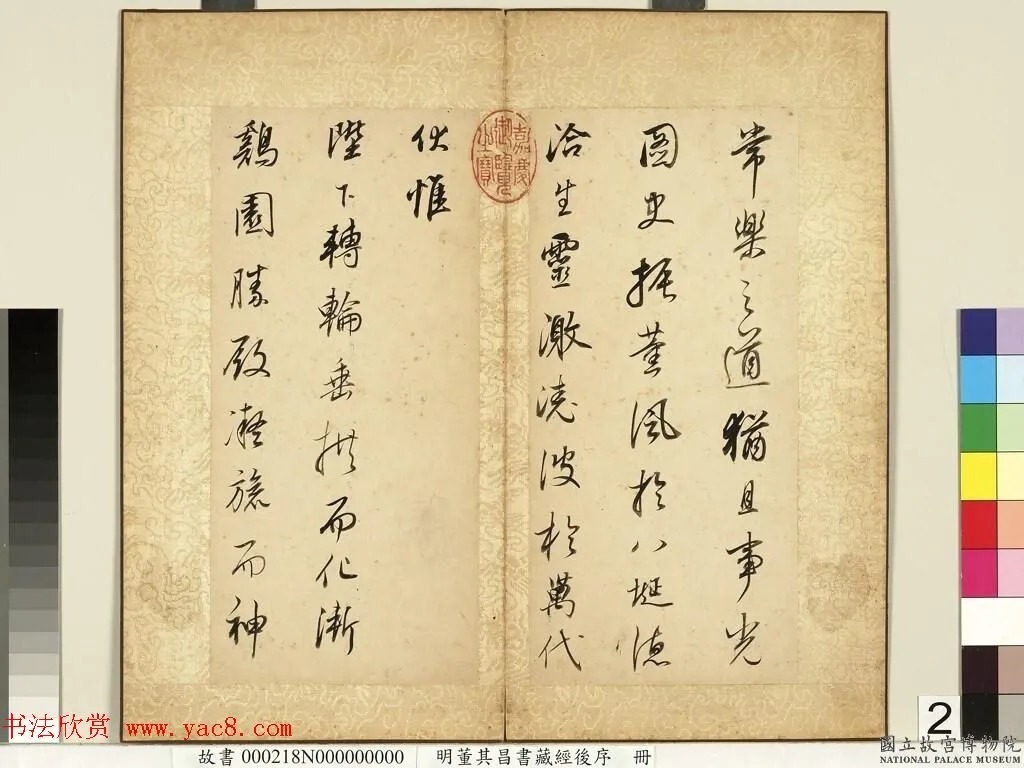 常樂之道猶且事光
圖史振薰風於八埏德
洽生靈激澆波於萬代
伏惟
陛下轉輪垂拱而化漸
鷄園勝殿凝旒而神
嘉慶御覽之寶
2
书法欣赏 www.yac8.com
故書 000218N000000000 明董其昌書藏經後序 冊
國立故宮博物院
NATIONAL PALACE MUSEUM